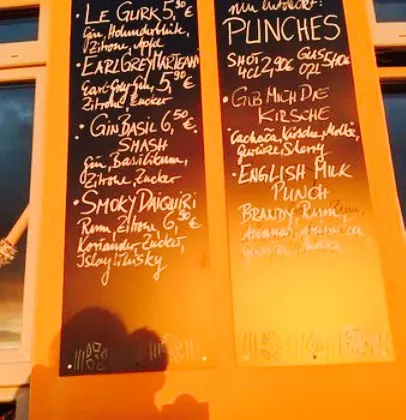 LE GURK 5,90 €
Gin, Holunderblüte,
Zitrone, Apfel
EARL GREY MARTEANI
Earl Grey Gin, 5,90 €
Zitrone, Zucker
GIN BASIL 6,50 €
SMASH
Gin, Basilikum,
Zitrone, Zucker
SMOKY DAIQUIRI
Rum, Zitrone 6,50 €
Koriander, Zucker,
Islay Whisky
PUNCHES
SHOT GLAS
4CL 2,90€ 0,2L 5,90€
GIB MICH DIE
KIRSCHE
Cachaca, Kirsche, Molke,
Gewürze, Sherry
ENGLISH MILK
PUNCH
BRANDY, Rum,
Ananas,